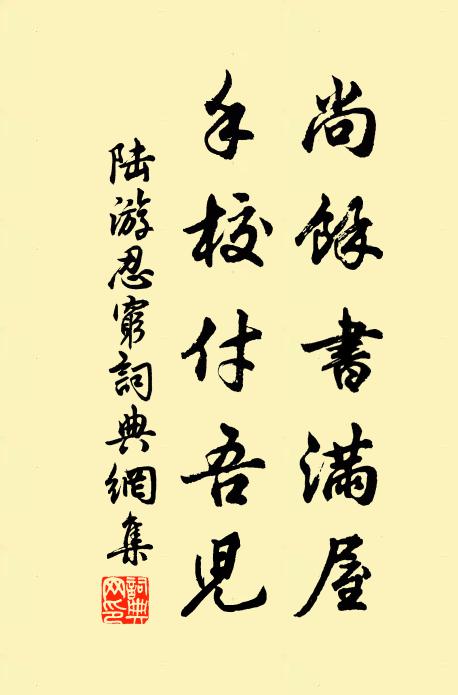 尚餘書滿屋
手校付吾児
陸游忍窮詞典網集
詞典网印